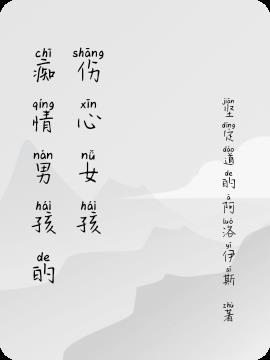 chī qíng nán hái de
痴情男孩的
shāng xīn nǚ hái
伤心女孩
jiān dìng dào de ā luò yī sī zhù
坚定道的阿洛伊斯 著